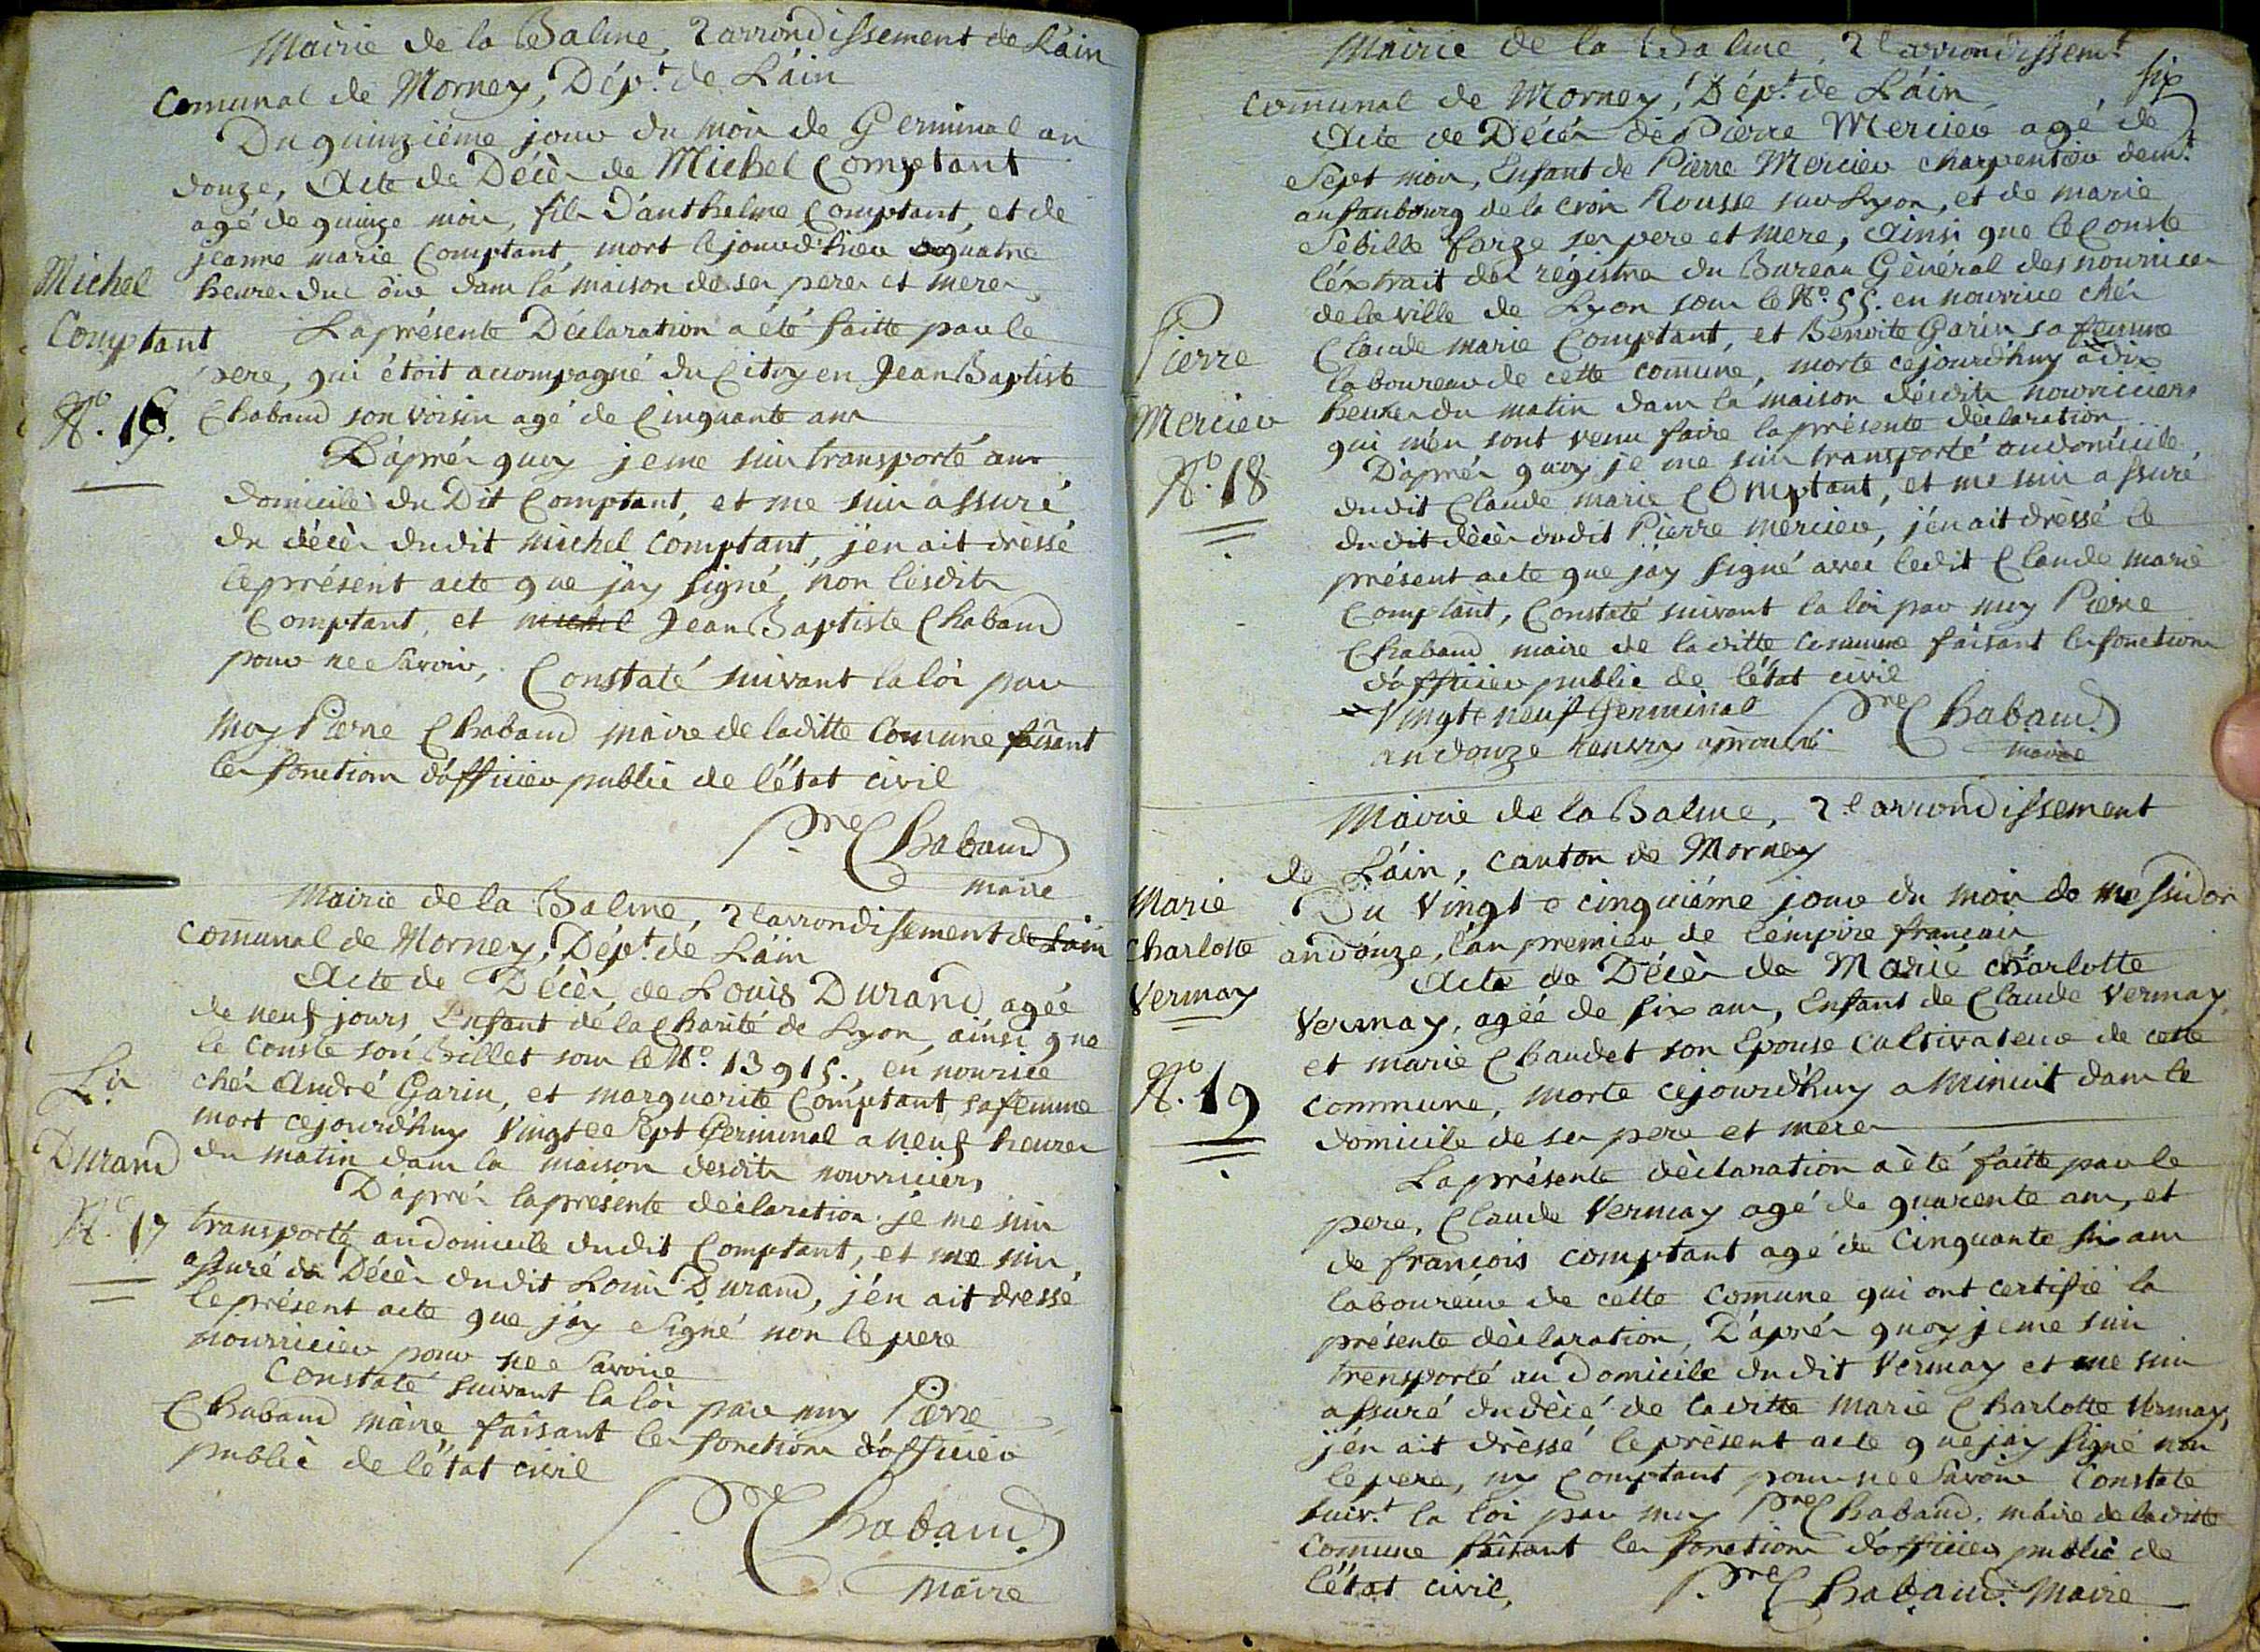 Mairie de la Balme, 2 arrondissement de L'ain
Comunal de Morney, Dép.t de L'ain
Du quinzième jour du mois de Germinal an
douze, Acte de Décès de Michel Comptant
agé de quinze mois, fils D'anthelme Comptant, et de
jeanne marie Comptant, mort le jour d'hier a quatre
heures du soir dans la maison de ses peres et meres,
Michel
Comptant
N.o 16.
La présente Déclaration a été faitte par le
pere, qui étoit accompagné du Citoyen Jean Baptiste
Chabaud son voisin agé de Cinquante ans
D'après quoy je me suis transporté aux
domicile du Dit Comptant, et me suis assuré
du décès dudit michel Comptant, j'en ait drèssé
le présent acte que j'ay signé, non lesdits
Comptant, et michel Jean Baptiste Chabaud
pour ne Savoir, Constaté suivant la loi par
Moy Pierre Chabaud maire de laditte Comune faisant
les fonctions d'officier public de l'état civil
P.re Chabaud
maire
Mairie de la Balme, 2.e arrondissement de Lain
Communal de Morney, Dép.t de L'ain
Acte de Décès, de Louis Durand agée
de neuf jours Enfant de la Charité de Lyon, ainsi que
le conste son Billet sous le N.o 13915., en nourice
chés André Garin, et marguerite Comptant sa femme
mort cejourd'huy Vingt e Sept Germinal a neuf heures
du matin dans la maison desdits nourriciers
Durand
N.o 17
D'après la présente déclaration je me suis
transporté au domicile dudit Comptant, et me suis
assuré du Décès dudit Louis Durand, j'en ait dressé
le présent acte que j'ay Signé non le pere
nourricier pour ne Savoir
Constaté suivant la loi par moy Pierre
Chabaud maire faisant les fonctions d'officier
public de l'état civil
P. Chabaud
Maire
Mairie de la Balme, 2.e arrondissem.t
six
Communal de Morney, Dép.t de L'ain
Acte de Décès de Pierre Mercier agé de
Sept mois, Enfant de Pierre Mercier Charpentier dem.t
au faubourg de la Croix Rousse sur Lyon, et de marie
Sebille farge ses pere et mere, Ainsi que le Conste
l'éxtrait des régistres du Bureau Général des nourrices
de la ville de Lyon sous le N.o 55. en nourrice chés
Claude marie Comptant, et Benoite Garin sa femme
laboureur de cette comune, morte cejourd'huy a dix
heures du matin dans la maison desdits nourriciers
qui m'en sont venu faire la présente déclaration
Pierre
Mercier
N.o 18
D'après quoy je me suis transporté au domicile
dudit Claude marie Comptant, et me suis assuré
dudit décès dudit Pierre mercier, j'en ait drèssé le
présent acte que j'ay signé avec ledit Claude marie
Comptant, Constaté suivant la loi par moy Pierre
Chabaud maire de laditte Commune faisant les fonctions
d'officier public de l'état civil
Vingt e neuf Germinal
an douze
P.re Chabaud
maire
Mairie de la Balme, 2.e arrondissement
de L'ain, Canton de Morney
Du Vingt e cinquième jour du mois de messidor
an douze, l'an premier de l'empire français
Acte de Décès de Marie charlotte
Vermay, agée de six ans, Enfant de Claude Vermay
et marie Chaudet son Epouse Cultivateur de cette
commune, morte cejourd'huy a minuit dans le
domicile de ses pere et meres
Marie
Charlotte
Vermay
N.o 19
La présente déclaration a été faitte par le
pere, Claude Vermay agé de quarente ans, et
de françois comptant agé de Cinquante six ans
laboureur de cette Comune qui ont certifié la
présente déclaration, D'après quoy je me suis
trensporté au Domicile dudit Vermay et me suis
assuré du décé de laditte marie Charlotte Vermay,
j'en ait drèssé le présent acte que j'ay signé non
le pere, ny Comptant pour ne Savoir Constaté
suiv.t la loi par moy P.re Chabaud, maire de laditte
Comune faisant les fonctions d'officier public de
l'état civil,
P.re Chabaud Maire